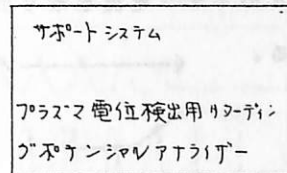 サポートシステム
プラズマ電位検出用リターディン
グポテンシャルアナライザー